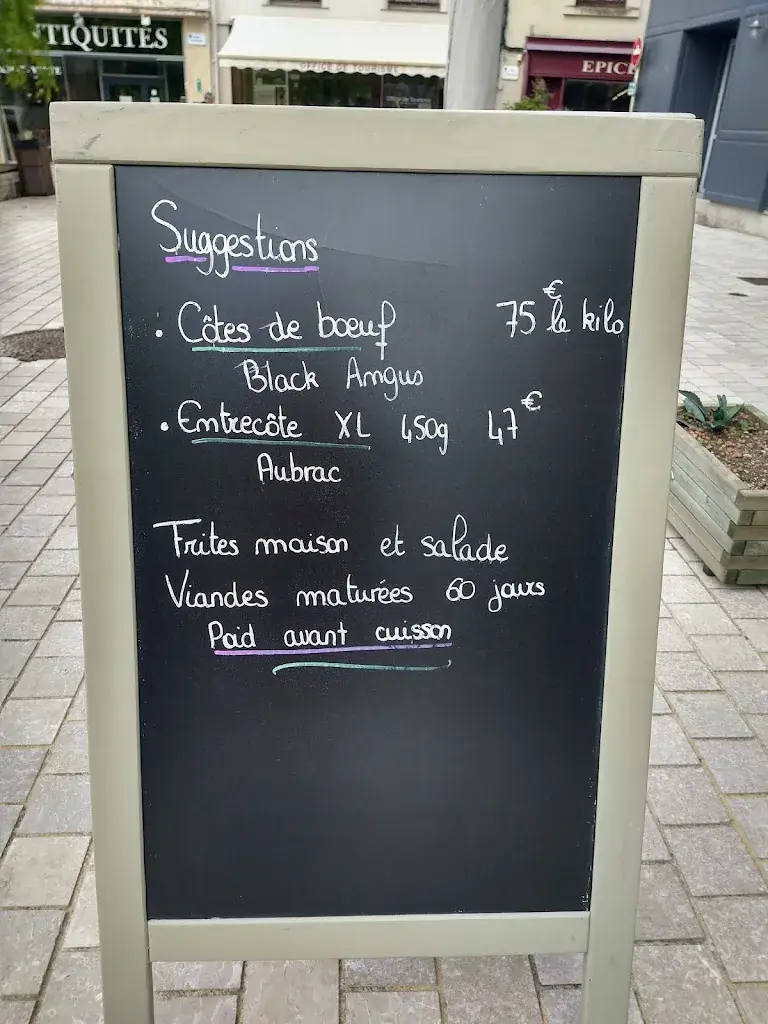 NTIQUITÉS
OFFICE DE TOURISME
EPICE
Suggestions
• Côtes de bœuf 75€ le kilo
Black Angus
• Entrecôte XL 450g 47€
Aubrac
Frites maison et salade
Viandes maturées 60 jours
Poid avant cuisson